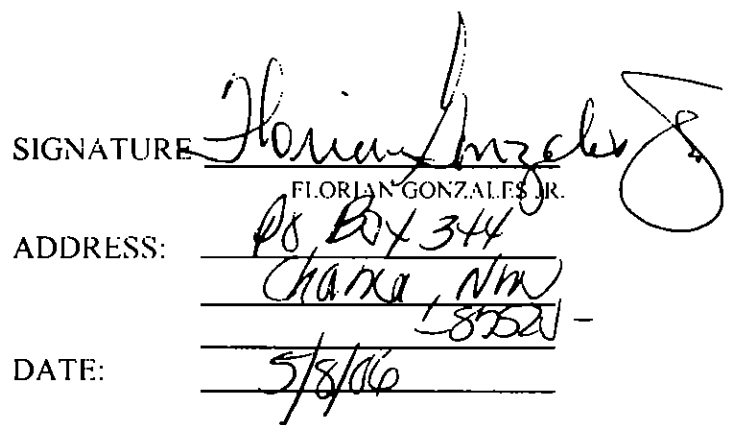 SIGNATURE Florian Gonzales Jr
FLORIAN GONZALES JR.
ADDRESS: PO Box 344
Chama, NM
87520 -
DATE: 5/8/06